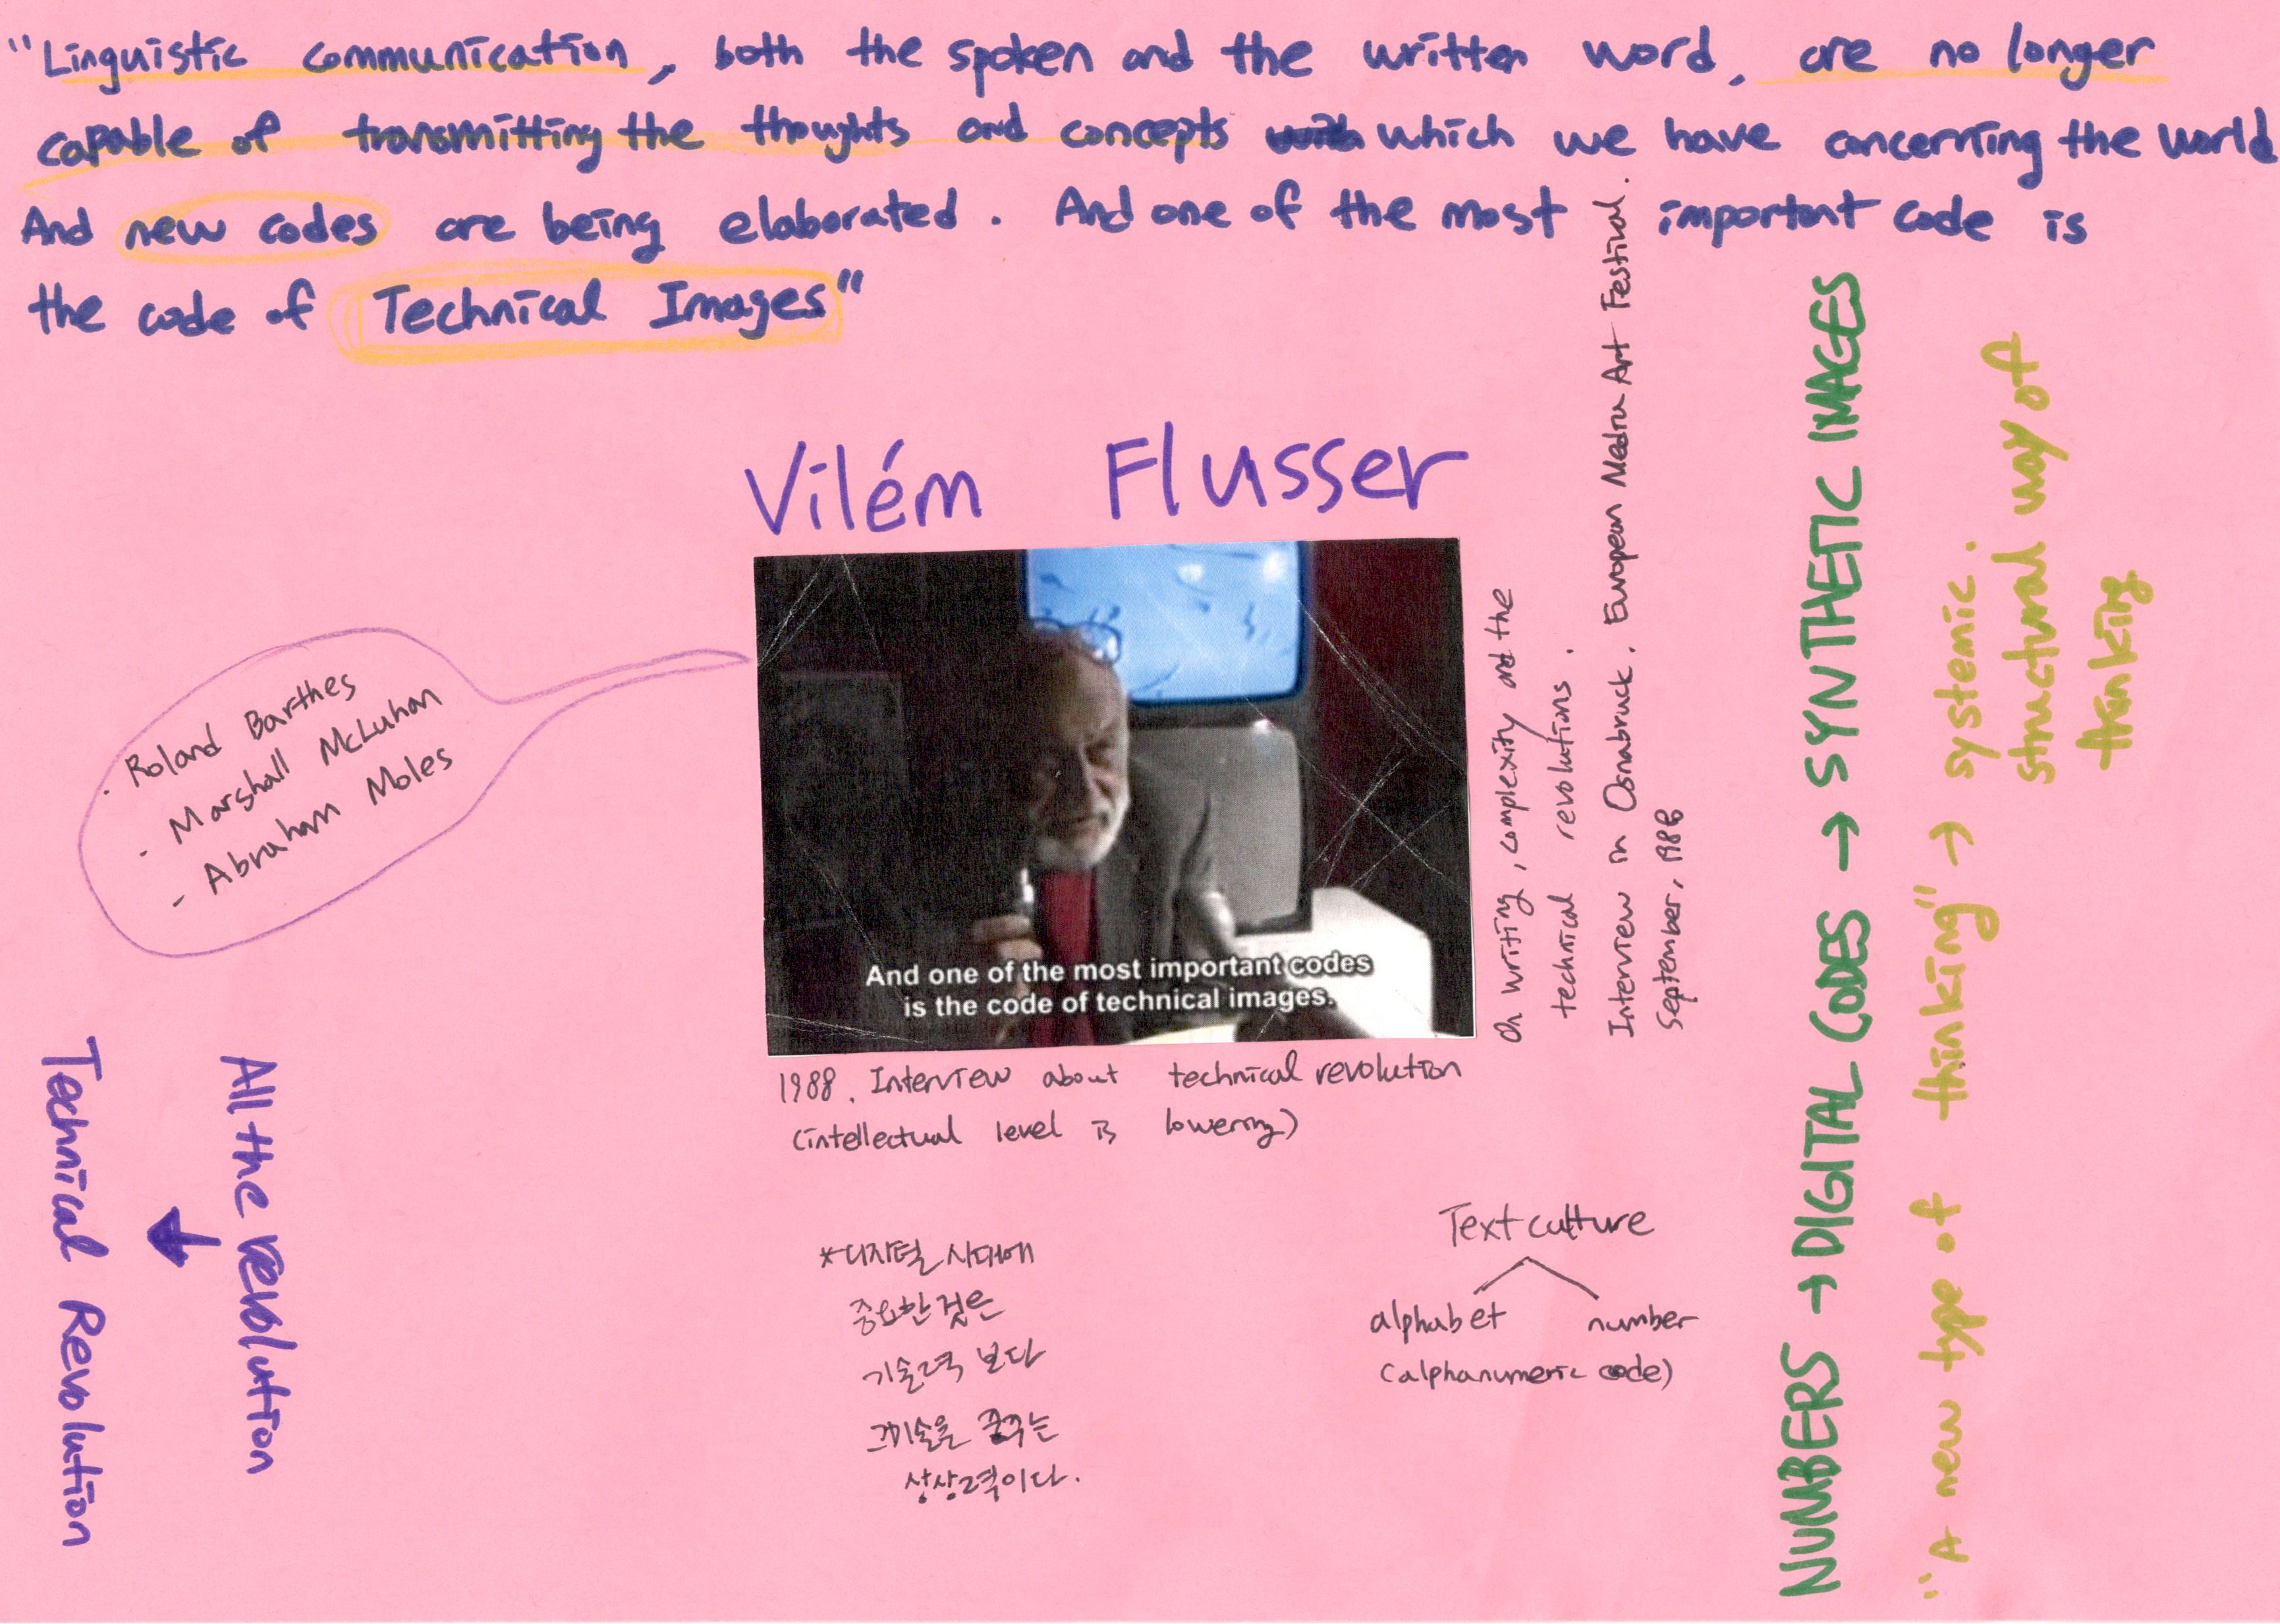 "Linguistic communication, both the spoken and the written word, are no longer
capable of transmitting the thoughts and concepts which we have concerning the world
And new codes are being elaborated. And one of the most important code is
the code of Technical Images"
Vilém Flusser
And one of the most important codes
is the code of technical images.
1988. Interview about technical revolution
(intellectual level is lowering)
On writing, complexity and the
technical revolutions.
Interview in Osnabruck, European Media Art Festival.
September, 1988
· Roland Barthes
- Marshall McLuhan
- Abraham Moles
All the revolution
→
Technical Revolution
*디지털 시대에
중요한 것은
기술력 보다
그 기술을 꿈꾸는
상상력이다.
Text culture
alphabet number
(alphanumeric code)
NUMBERS → DIGITAL CODES → SYNTHETIC IMAGES
"A new type of thinking" → systemic.
structural way of
thinking